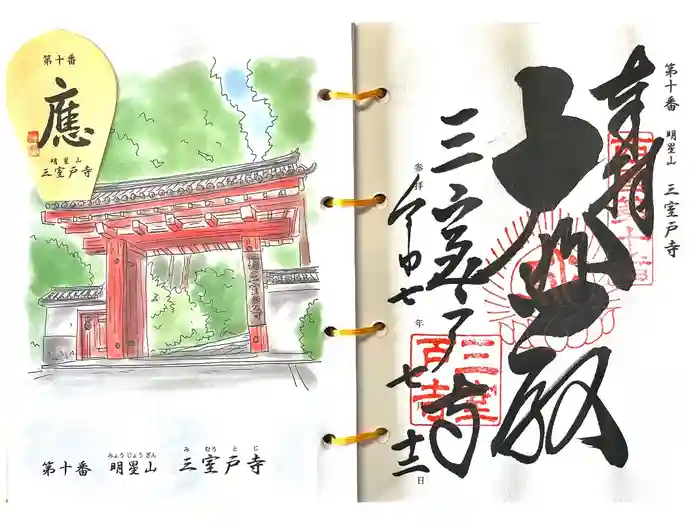 第十番
應
明星山
三室戸寺
第十番 明星山 三室戸寺
みょうじょうざん み むろ と じ
第十番 明星山 三室戸寺
奉拝
大悲殿
三室戸寺
参拝 令和七年七月十二日
三室戸寺